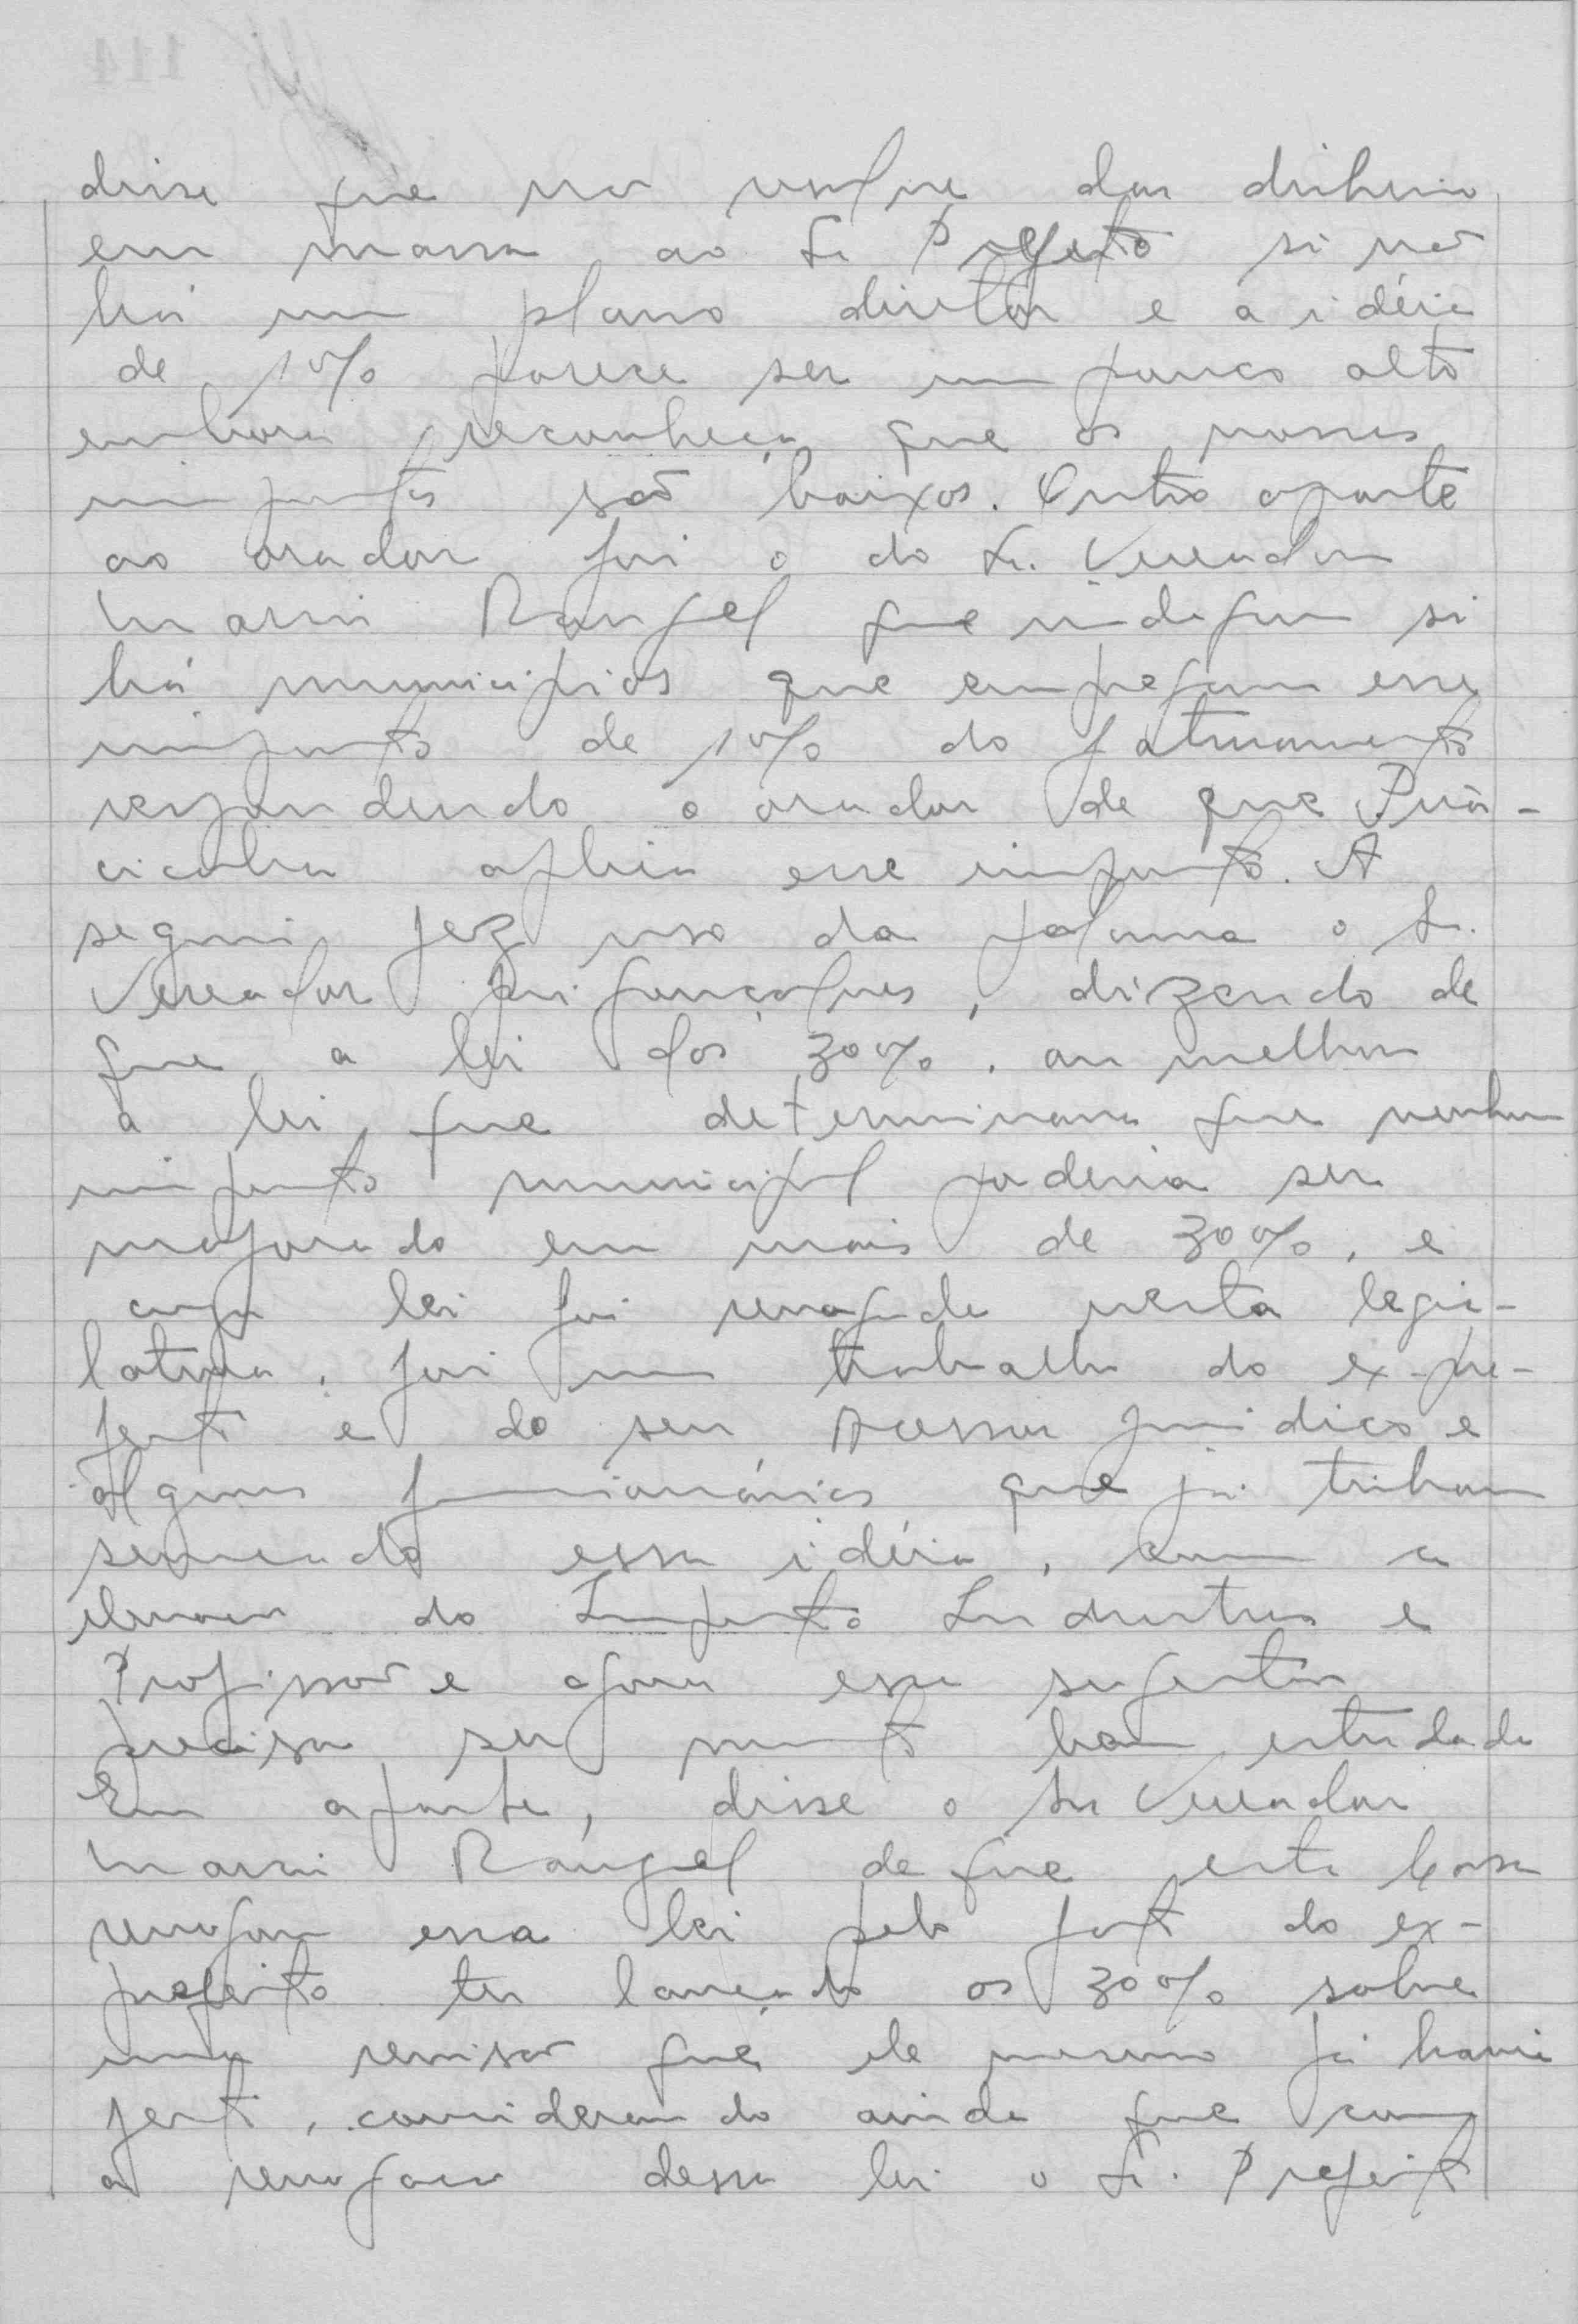 disse que não resolve dar dinheiro
em massa ao Sr Prefeito si não
há um plano diretor e a idéia
de 10% parece ser um pouco alto
embora reconheça que os nossos
impostos são baixos. Outro aparte
ao orador foi o do Sr. Vereador
Mario Rangel que indagou si
há municipios que empregam esse
imposto de 10% do faturamento
respondendo o orador de que Pira-
cicaba aplica esse imposto. A
seguir fez uso da palavra o Sr.
Vereador Gonçalves, dizendo de
que a lei dos 30%, ou melhor
a lei que determinava que nenhum
imposto municipal poderia ser
majorado em mais de 30%, e
cuja lei foi revogada nesta legis-
latura, foi um trabalho do ex-pre-
feito e do seu Acessor juridico e
alguns funcionários que já tinham
semeado essa idéia, com a
do Imposto Industrias e
Profissão e agora essa sugestão
precisa ser muito bem estudada
Em aparte, disse o Sr Vereador
Mario Rangel de que esta Casa
revogou essa lei pelo fato do ex-
prefeito ter lançado os 30% sobre
uma revisão que ele mesmo já havia
feito, considerando ainda que com
a revogação dessa lei o Sr. Prefeito